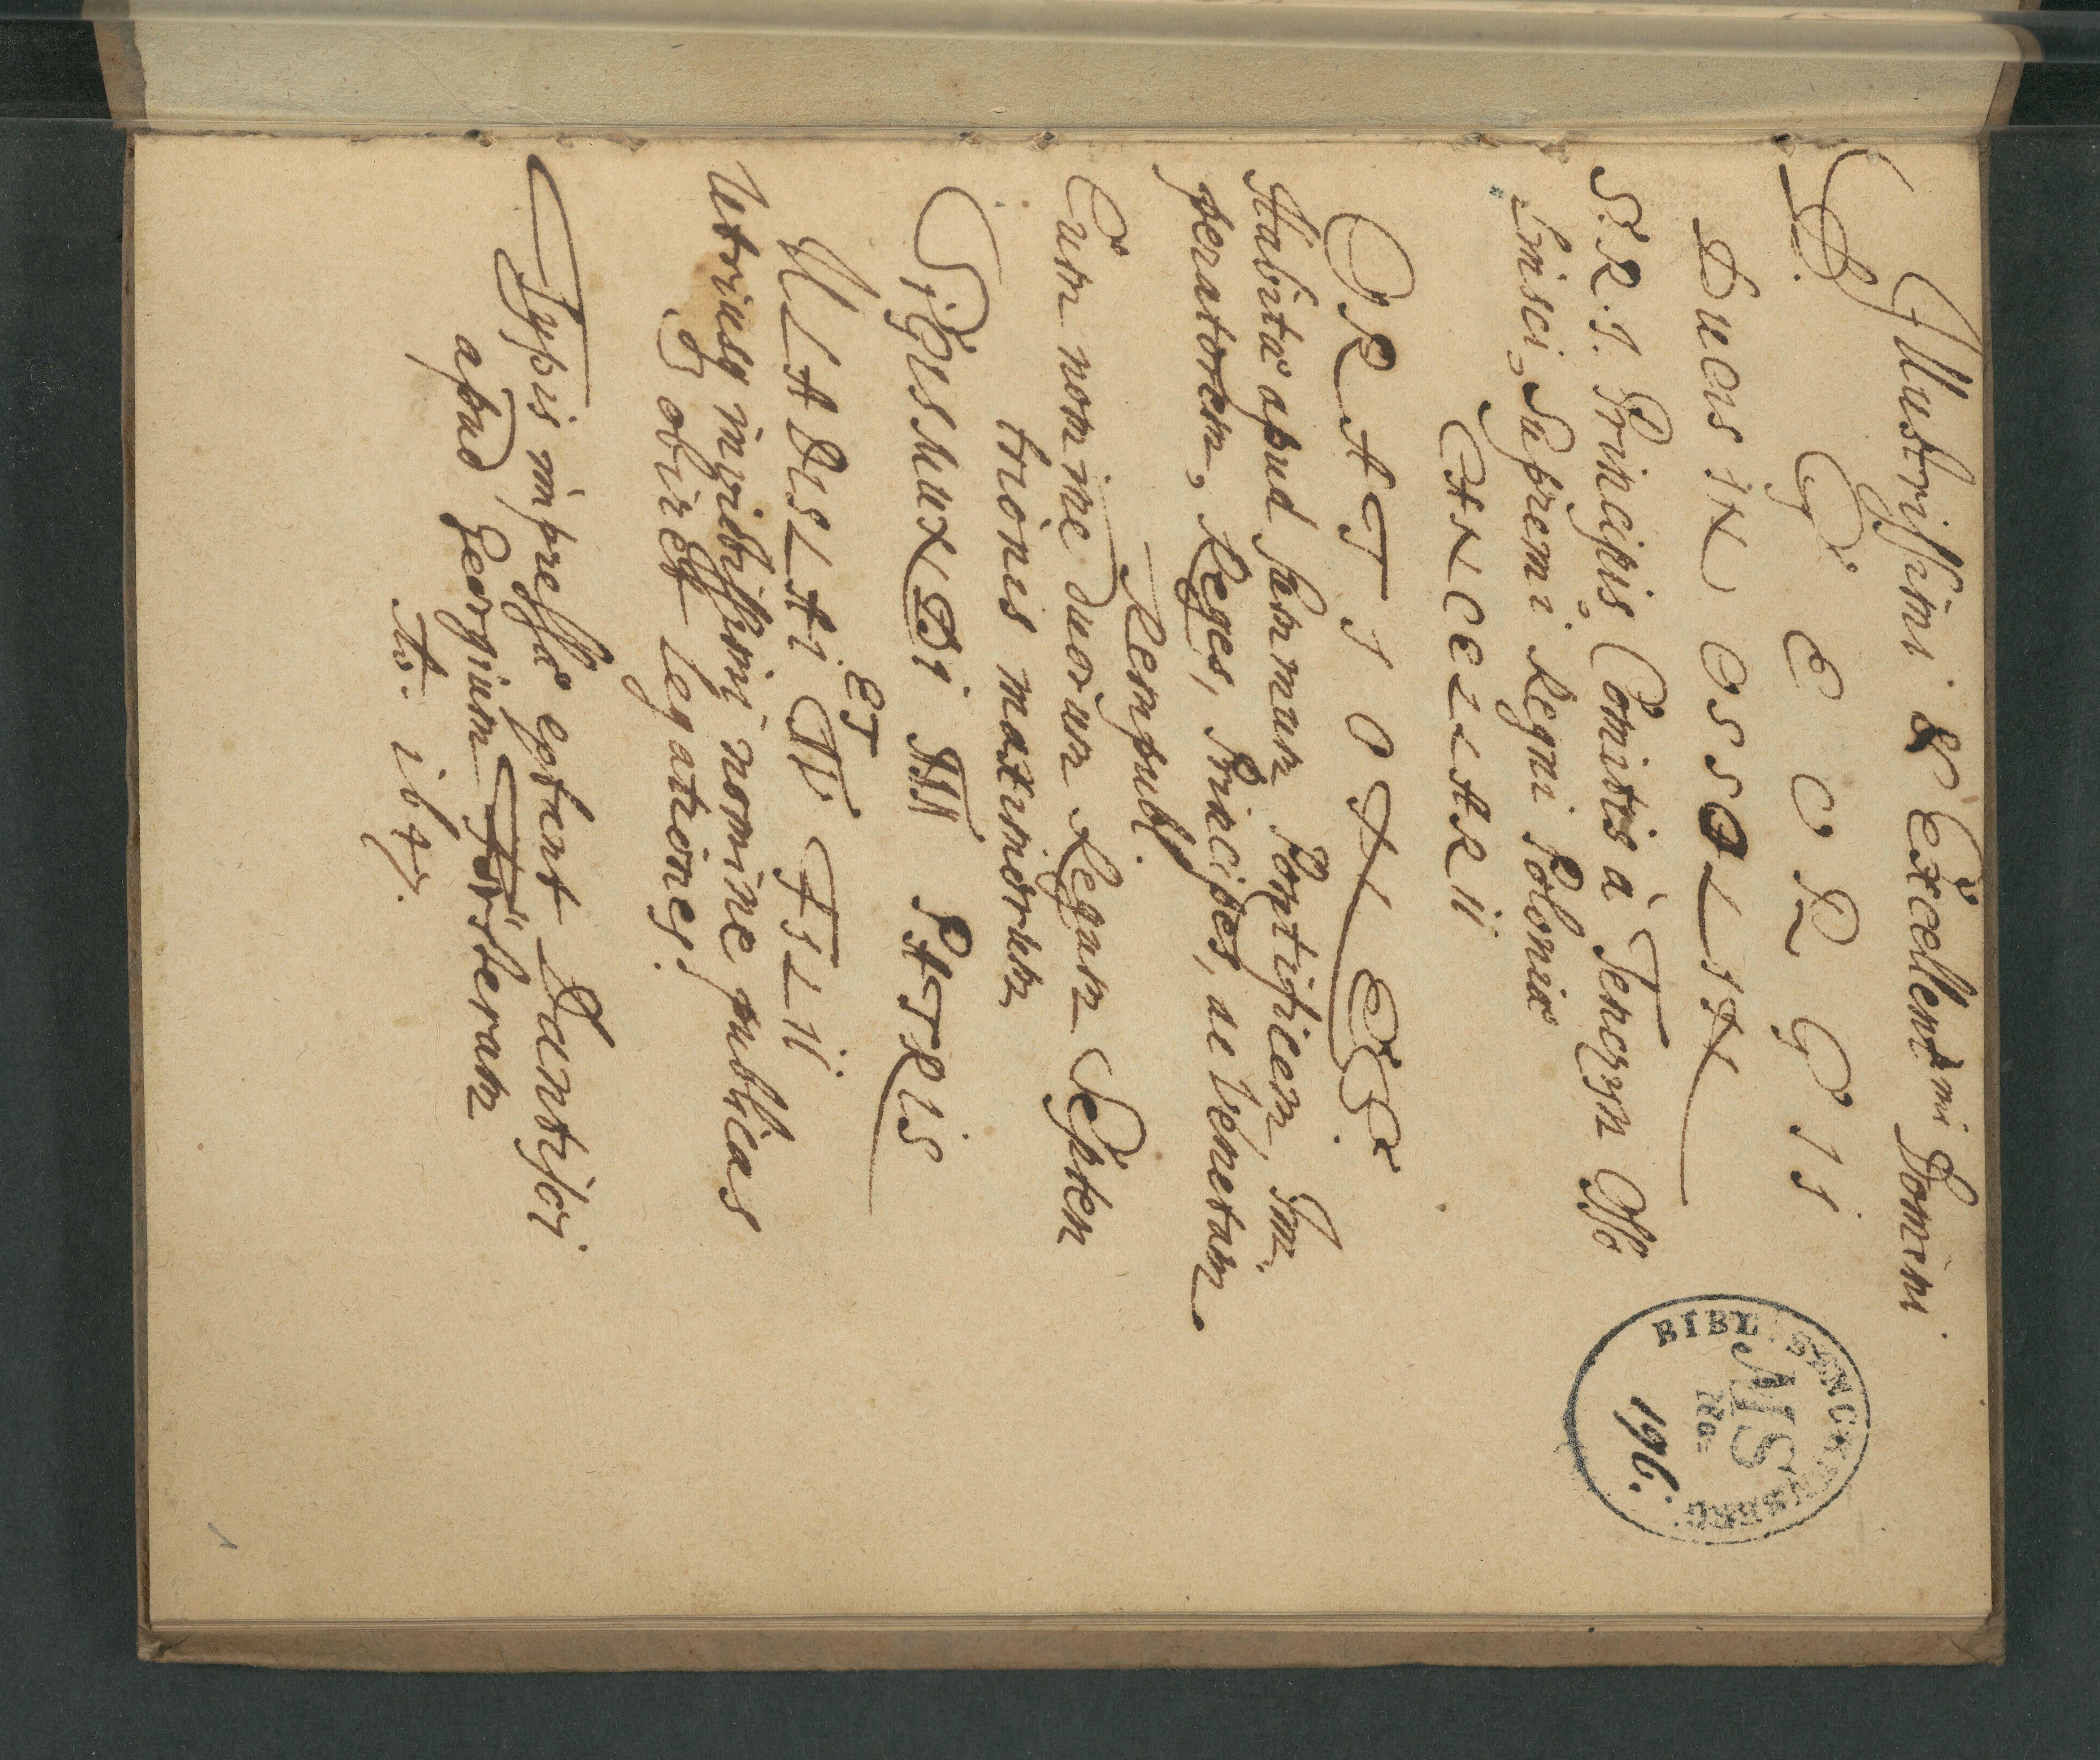 Illustrissimi & Excellentmi Domini
D. GEORGIJ
DUCIS IN OSSOLIN
S. R. I. Principis Comitis à Tenczyn Oss
linsci, Supremi Regni Poloniæ
CANCELLARII
ORATIONES
Habitæ apud Summum Pontificem, Im
peratorem, Reges, Principes, ac Venetam
Rempubl.
Cum nomine duorum Regum Septen
trionis maximorum
SIGISMUNDI III PATRIS
ET
ULADISLAI IV. FILII.
Utriusq invictissimj nomine publicas
obiret legationes.
Typis impressæ extant Dantiscj
apud Georgium Försterum
Ao. 1647.
BIBL. OSSOLINSKANSKA
MS
196.
1